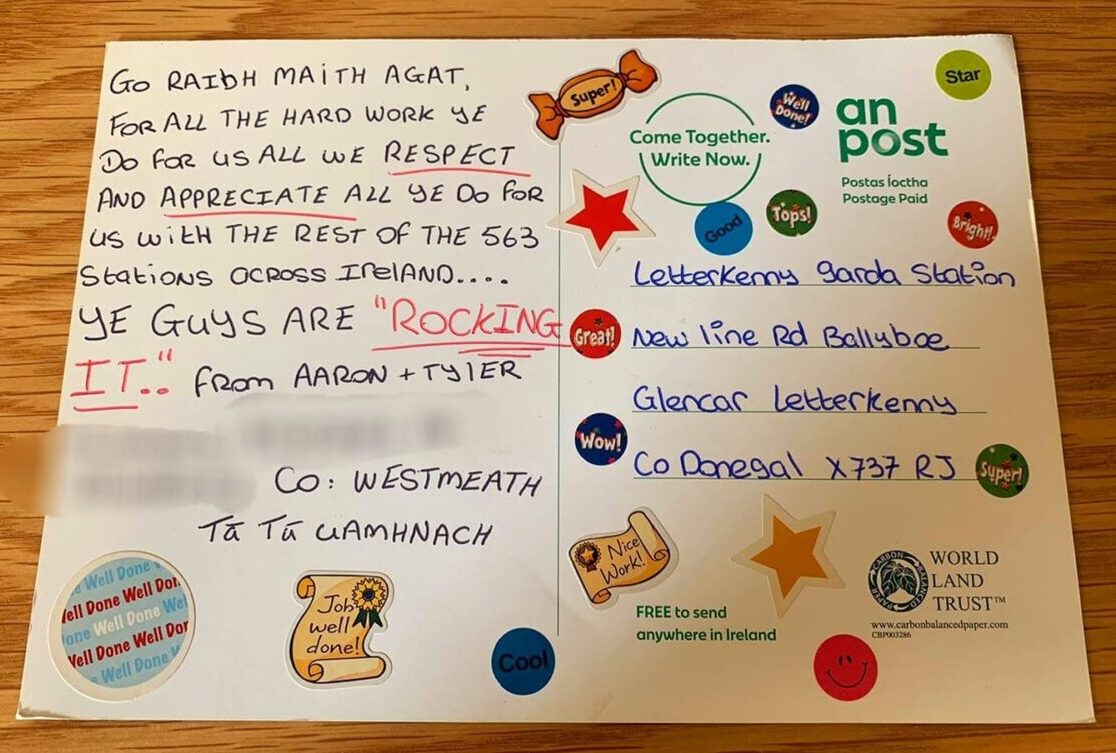 GO RAIBH MAITH AGAT,
FOR ALL THE HARD WORK YE
DO FOR US ALL WE RESPECT
AND APPRECIATE ALL YE DO FOR
US WITH THE REST OF THE 563
STATIONS ACROSS IRELAND....
YE GUYS ARE "ROCKING
IT.." FROM AARON + TYLER
CO: WESTMEATH
Tā Tū UAMHNACH
Well Done
Well Done Well Done
Well Done Well
Well Done Well Done
Well Done
Job
well
done!
Cool
Super!
Come Together.
Write Now.
Well
Done!
an
post
Star
Postas Íoctha
Postage Paid
Good
Tops!
Bright!
Letterkenny Garda Station
Great!
New line Rd Ballyboe
Glencar Letterkenny
Wow!
Co Donegal X737 RJ
Super!
Nice
Work!
FREE to send
anywhere in Ireland
CARBON BALANCED PAPER
WORLD
LAND
TRUST™
www.carbonbalancedpaper.com
CBP003286